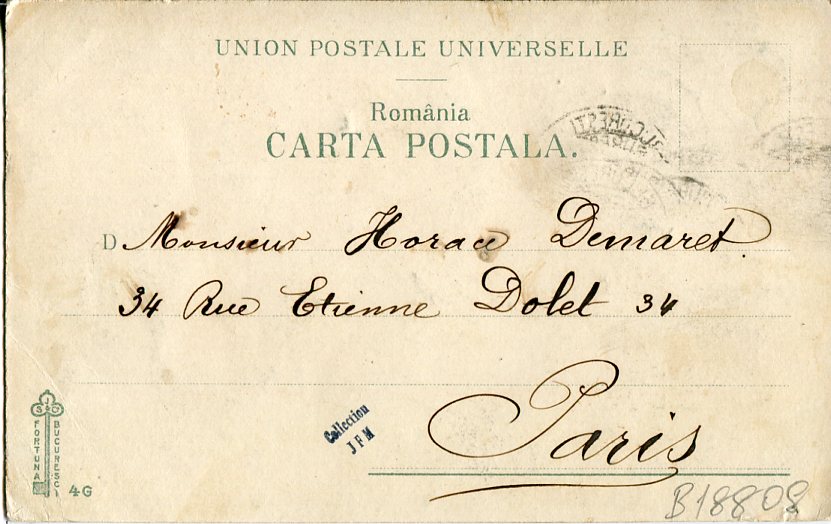 UNION POSTALE UNIVERSELLE
România
CARTA POSTALA.
BUCURESTI
D Monsieur Horace Demaret.
34 Rue Etienne Dolet 34
Paris
Collection
JFM
J
S & Co
FORTUNA
BUCURESCI
4G
B18808